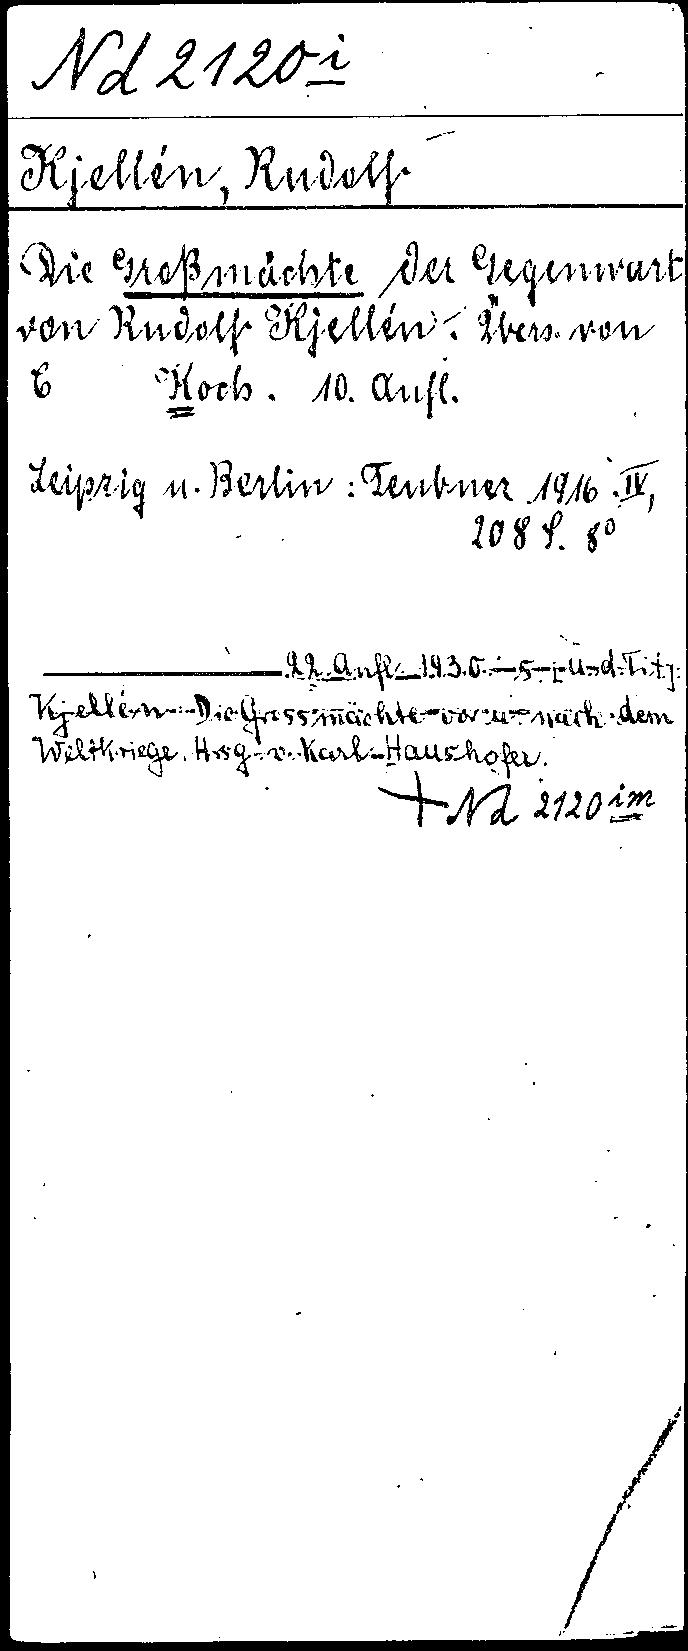 Nd 2120 i
Kjellén, Rudolf
Die Großmächte der Gegenwart
von Rudolf Kjellén. Übers. von
C Koch. 10. Aufl.
Leipzig u. Berlin: Teubner 1916. IV,
208 S. 8°
22. Aufl. 1930. s. [u. d. Tit].
Kjellén: Die Grossmächte vor u. nach dem
Weltkriege. Hrsg. v. Karl Haushofer.
+ Nd 2120 im